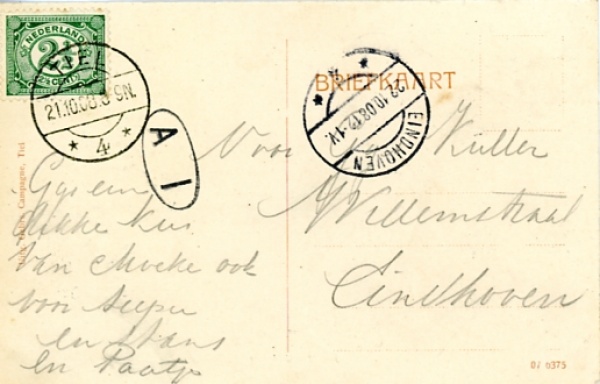 NEDERLAND
2½
CENT
TIEL
21.10.08.8-9N.
4
A I
BRIEFKAART
22.10.08.12-1V.
EINDHOVEN
Voor Küller
Willemstraat
Eindhoven
een
dikke kus
van Moeke ook
voor
en Hans
en Paatje
Campagne, Tiel
07 6375